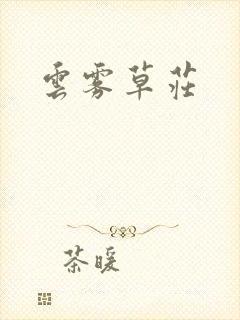 雲霧草莊
茶暖